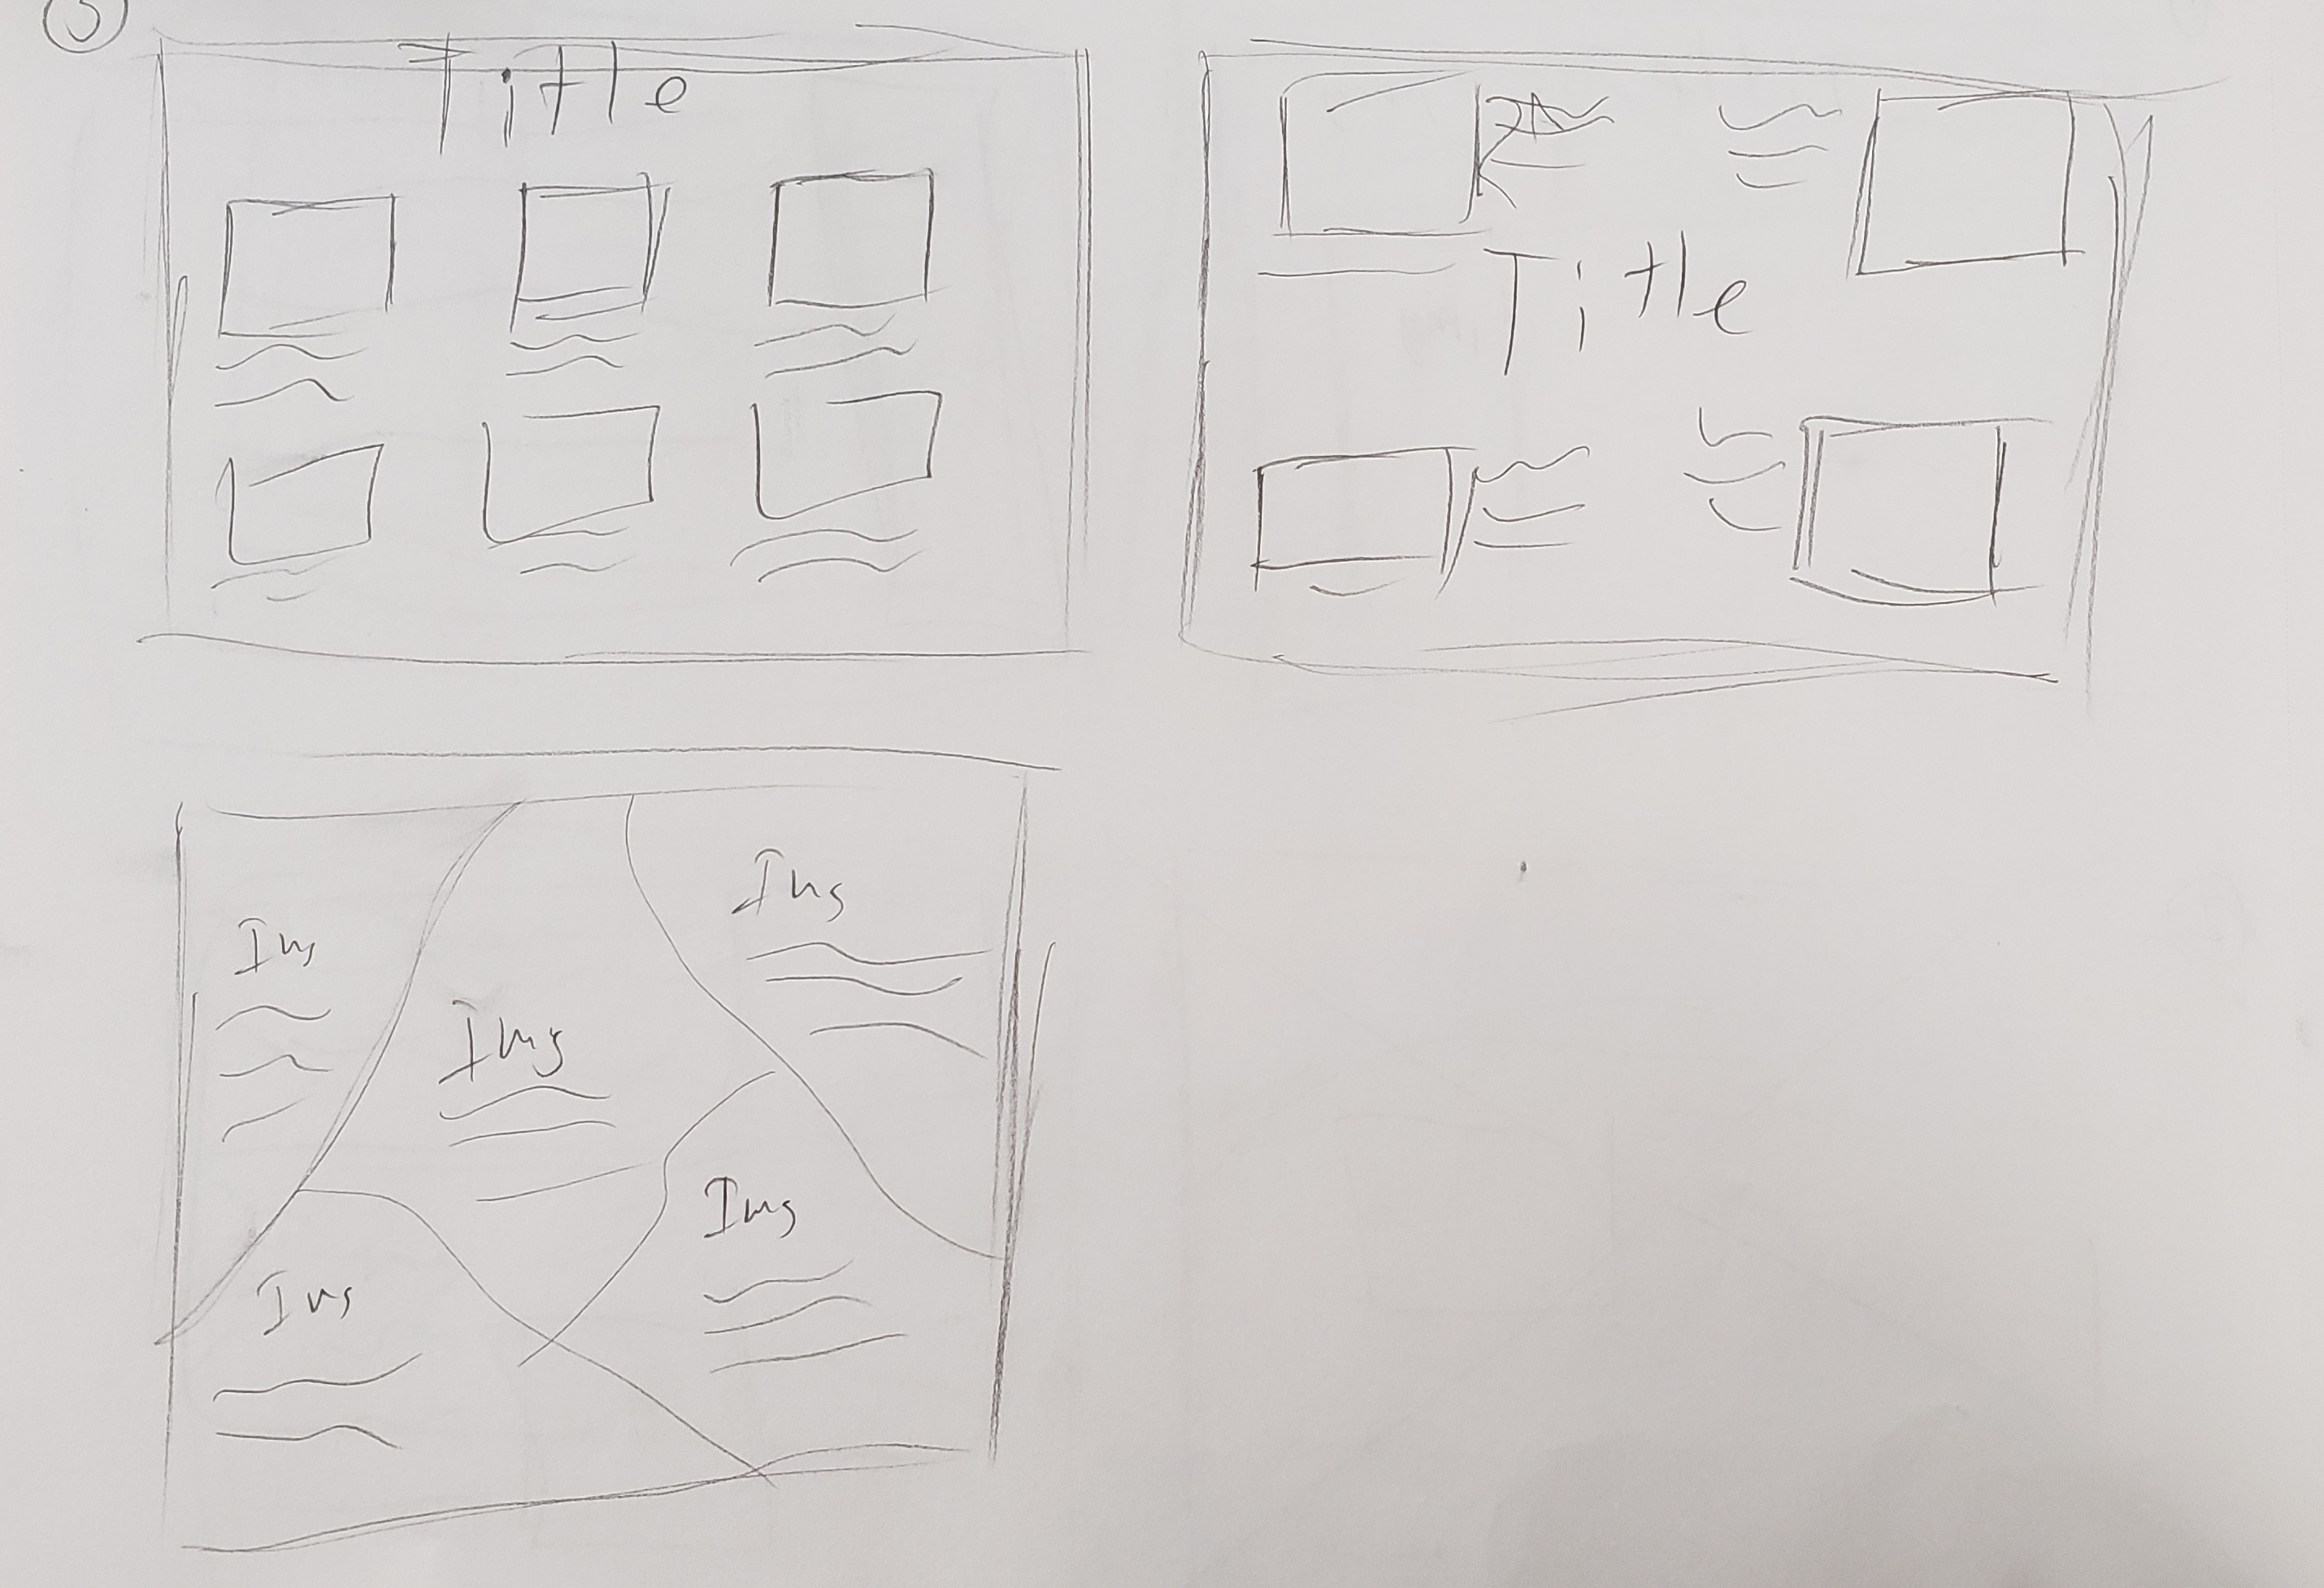 Title
Title
Img
Img
Img
Img
Img